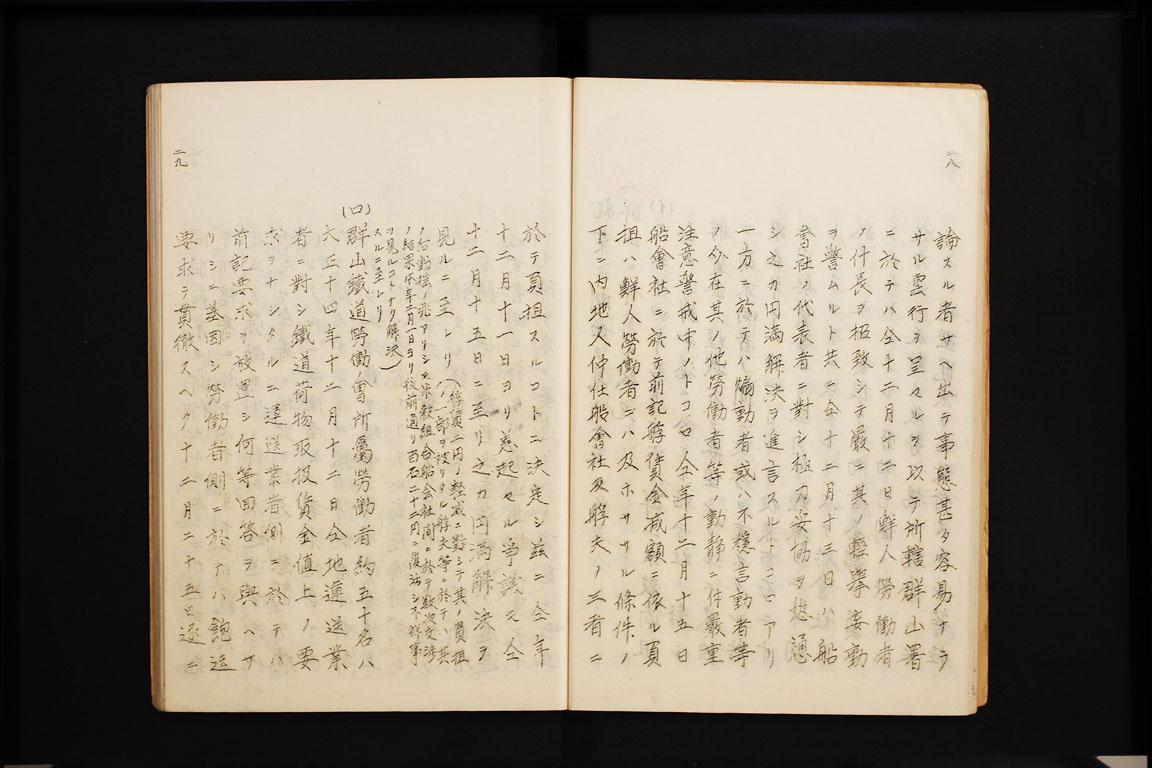 二八
論スル者サヘ出テ事態甚タ容易ナラ
サル雲行ヲ呈スルヲ以テ所轄群山署
ニ於テハ仝十二月十二日鮮人労働者
ノ什長ヲ招致シテ厳ニ其ノ軽挙妄動
ヲ警ムルト共ニ仝十二月十三日ハ船
會社ノ代表者ニ對シ極力妥協ヲ慫通
シ之カ円満解決ヲ進言スルトコロアリ
一方ニ於テハ煽動者或ハ不穏言動者等
ノ今在其ノ他労働者等ノ動静ニ付厳重
注意警戒中ノトコロ仝年十二月十五日
船會社ニ於テ前記艀賃金減額ニ依ル負
担ハ鮮人労働者ニハ及ホササル條件ノ
下ニ内地人仲仕船會社及艀夫ノ三者ニ
二九
於テ負担スルコトニ決定シ茲ニ仝年
十二月十一日ヨリ惹起セル争議モ仝
十二月十五日ニ至リ之カ円満解決ヲ
見ルニ至レリ
ノ結果本年二月一日ヨリ従前通リ百石二十二円ニ復活シ不祥事
ヲ見ルコトナク解決)
スルニ至レリ
(四)
群山鐵道労働會所屬労働者約五十名ハ
大正十四年十二月十二日仝地運送業
者ニ對シ鐵道荷物取扱賃金値上ノ要
求ヲナシタルニ運送業者側ニ於テハ
前記要求ヲ放置シ何等回答ヲ與ヘサ
リシニ基因シ労働者側ニ於テハ飽迄
要求ヲ貫徹スヘク十二月二十五日遂ニ